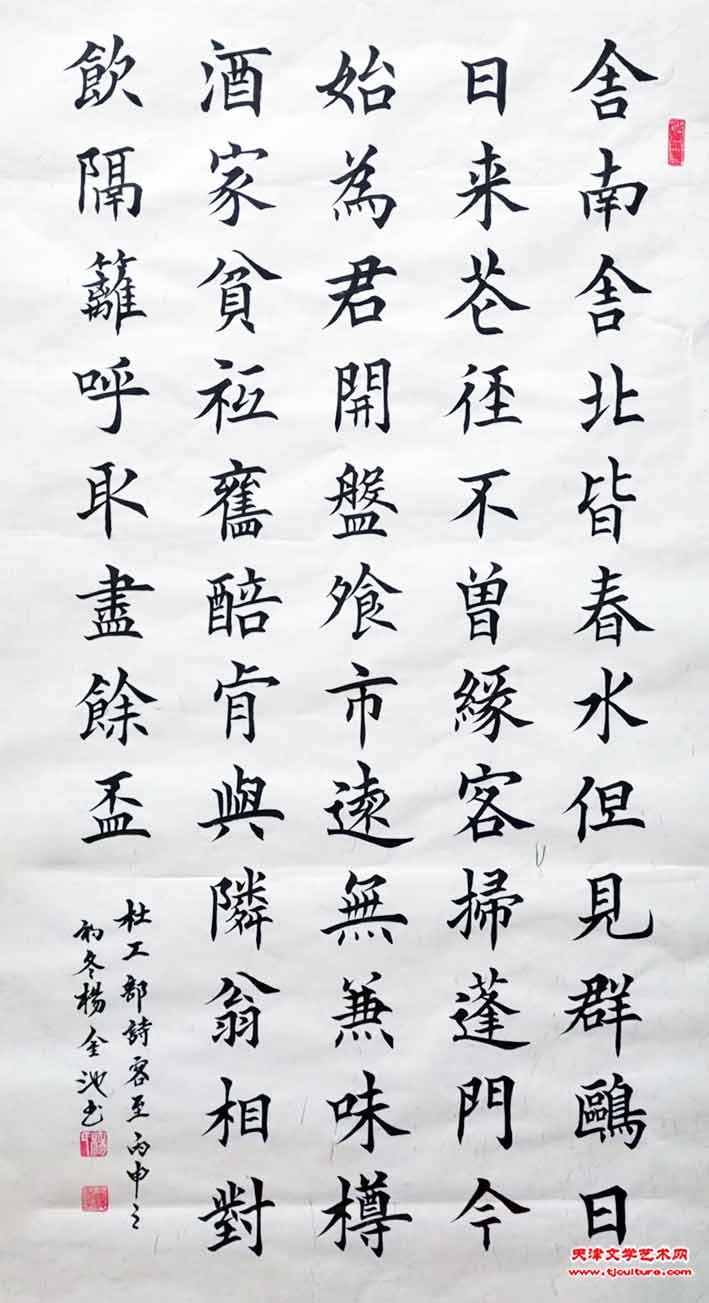 舍南舍北皆春水但見群鷗日
日来花径不曾緣客掃蓬門今
始為君開盤飧市遠無兼味樽
酒家貧衹舊醅肯與隣翁相對
飲隔籬呼取盡餘盃
杜工部詩客至丙申之
初冬楊金池书
天津文学艺术网
www.tjculture.com